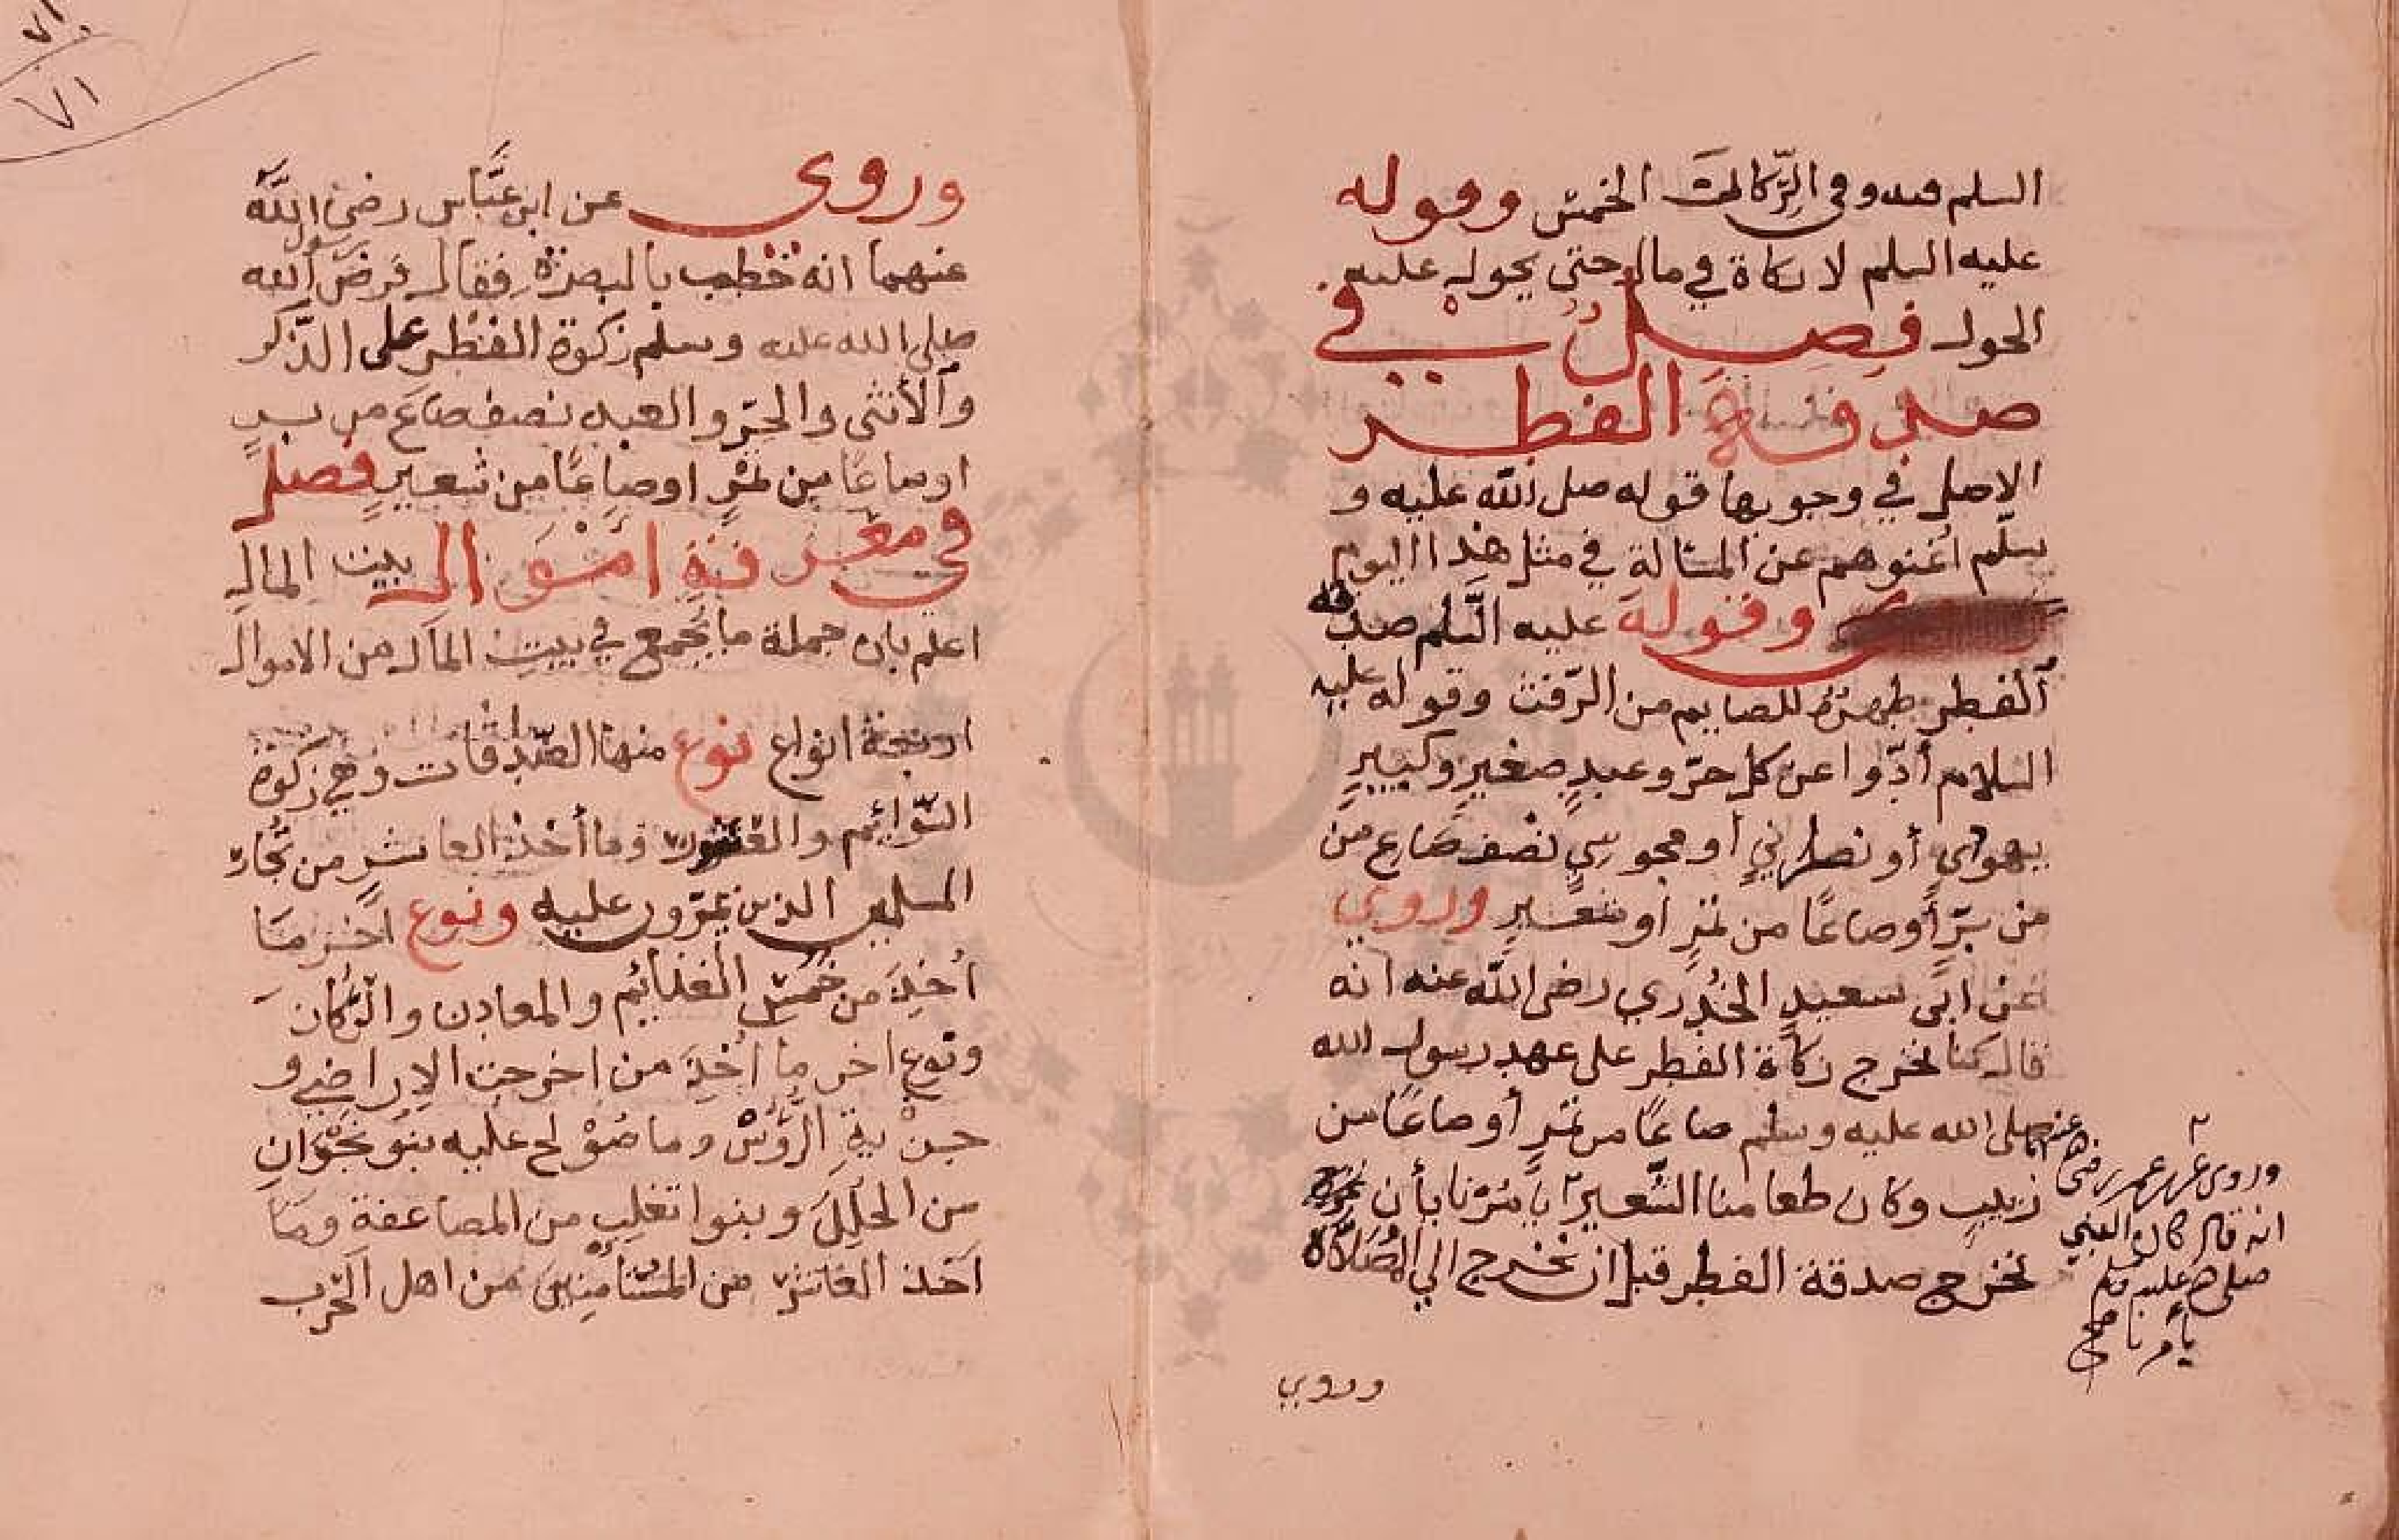 السلم وفي الرّكاز الخمس وقوله
عليه السلم لا زكاة في مال حتى يحول عليه
الحول فصل في
صدقة الفطر
الاصل في وجوبها قوله صلى الله عليه و
سلّم أغنوهم عن المسالة في مثل هذا اليوم
وقوله عليه السّلم صدقة
الفطر طهرة للصايم من الرّفث وقوله عليه
السلام أدّوا عن كل حرّ وعبدٍ صغيرٍ وكبيرٍ
يهودي أو نصراني أو مجوسي نصف صاع من
من برّ أو صاعًا من تمرٍ أو شعيرٍ وروي
عن ابي سعيدٍ الخُدري رضى الله عنه انه
قال كنا نخرج زكاة الفطر على عهد رسول الله
صلى الله عليه وسلم صاعًا من تمرٍ أو صاعًا من
زبيبٍ وكان طعامنا الشّعير ٢ يأمرنا بأن نخرج
نخرج صدقة الفطر قبل ان نخرج الي الصّلاة
٢
وروى عن عمر رضى الله عنه
انه قال كان النبي
صلى الله عليه وسلم
يأمرنا صح
وروي
٧١
وروي عن ابن عبّاس رضى الله
عنهما انه خطب بالبصرة فقال فرض رسول الله
صلى الله عليه وسلم زكوة الفطر على الذّكر
والأنثى والحرّ والعبد نصف صاع من برٍ
اوصاعًا من تمرٍ اوصاعًا من شعيرٍ فصل
في معرفة اموال بيت المال
اعلم بان جملة ما يجمع في بيت المال من الاموال
اربعة انواع نوع منها الصّدقات وهي زكوة
السّوائم والعشور وما أخذ العاشر من تجار
المسلمين الذين يمرّون عليه ونوع اخر ما
أُخِذَ من خمس الغنائم والمعادن والرّكاز
ونوع اخر ما أُخِذَ من اخرجت الاراضي و
جزية الرّؤس وما صُوْلح عليه بنو نجران
من الحلل وبنوا تغلب من المضاعفة وما
اخذ العاشر من المستأمنين من اهل الحرب